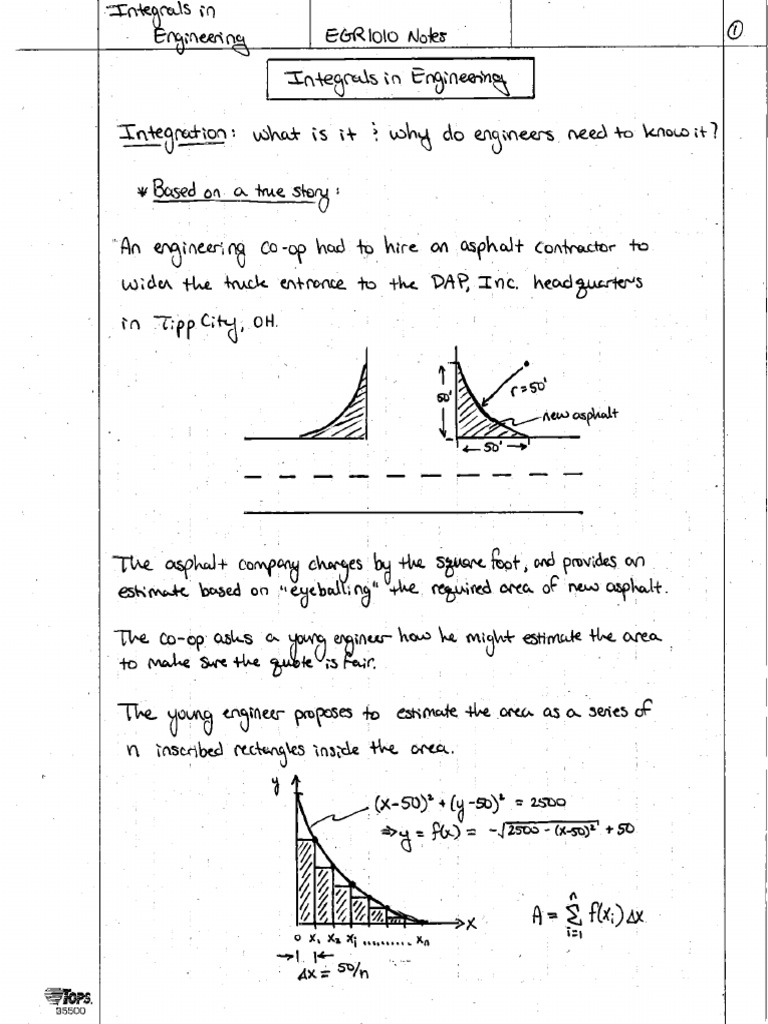 Integrals in
Engineering
EGR1010 Notes
1
Integrals in Engineering
Integration: what is it & why do engineers need to know it?
* Based on a true story:
An engineering co-op had to hire an asphalt contractor to
widen the truck entrance to the DAP, Inc. headquarters
in Tipp City, OH.
50'
r=50'
new asphalt
50'
The asphalt company charges by the square foot, and provides an
estimate based on "eyeballing" the required area of new asphalt.
The co-op asks a young engineer how he might estimate the area
to make sure the quote is fair.
The young engineer proposes to estimate the area as a series of
n inscribed rectangles inside the area.
y
(x-50)² + (y-50)² = 2500
⇒ y = f(x) = -√(2500 - (x-50)²) + 50
A = Σ f(xᵢ) Δx
n
i=1
x
0 x₁ x₂ xᵢ .......... xₙ
Δx = 50/n
TOPS.
35500